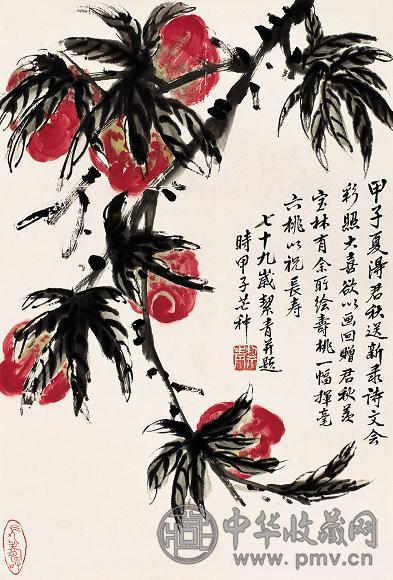 甲子夏得君秋送新录诗文会
彩照大喜欲以画回赠君秋羡
宝林有余所绘壽桃一幅揮毫
六桃以祝長寿
七十九歲絜青并题
時甲子芒种
中华收藏网
www.pmv.cn